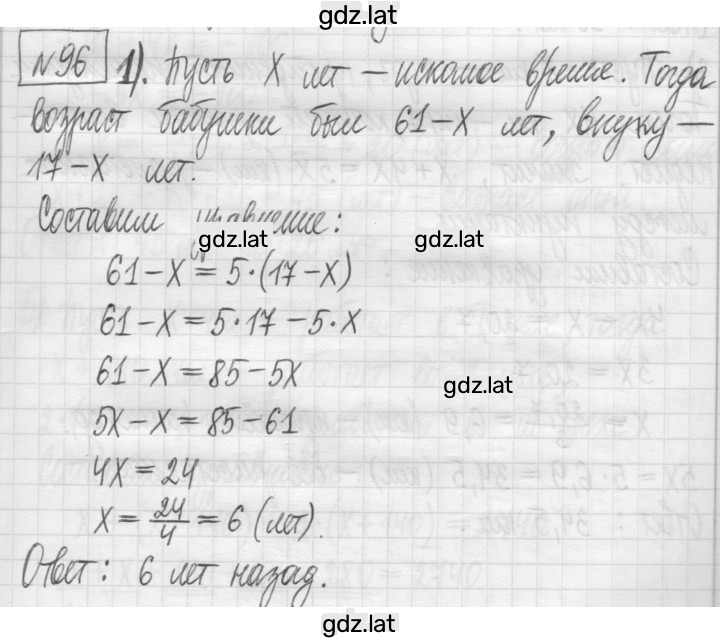 gdz.lat
№96 1). Пусть X лет – искомое время. Тогда
возраст бабушки был 61-X лет, внуку –
17-X лет.
Составим уравнение:
gdz.lat gdz.lat
61-X = 5·(17-X)
61-X = 5·17-5·X
61-X = 85-5X
gdz.lat
5X-X = 85-61
4X = 24
X = 24/4 = 6 (лет).
Ответ: 6 лет назад.
gdz.lat